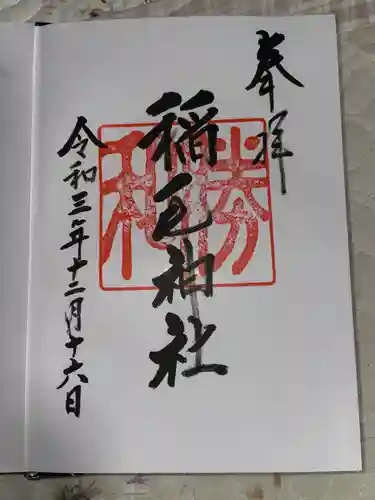 奉拝
稲毛神社
勝和
令和三年十二月十六日